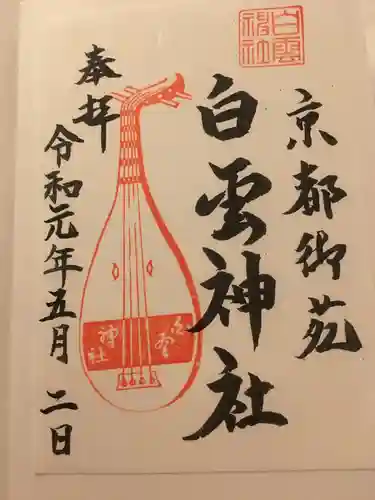 京都御苑
白雲神社
奉拝
令和元年五月二日
白雲
神社
白雲
神社